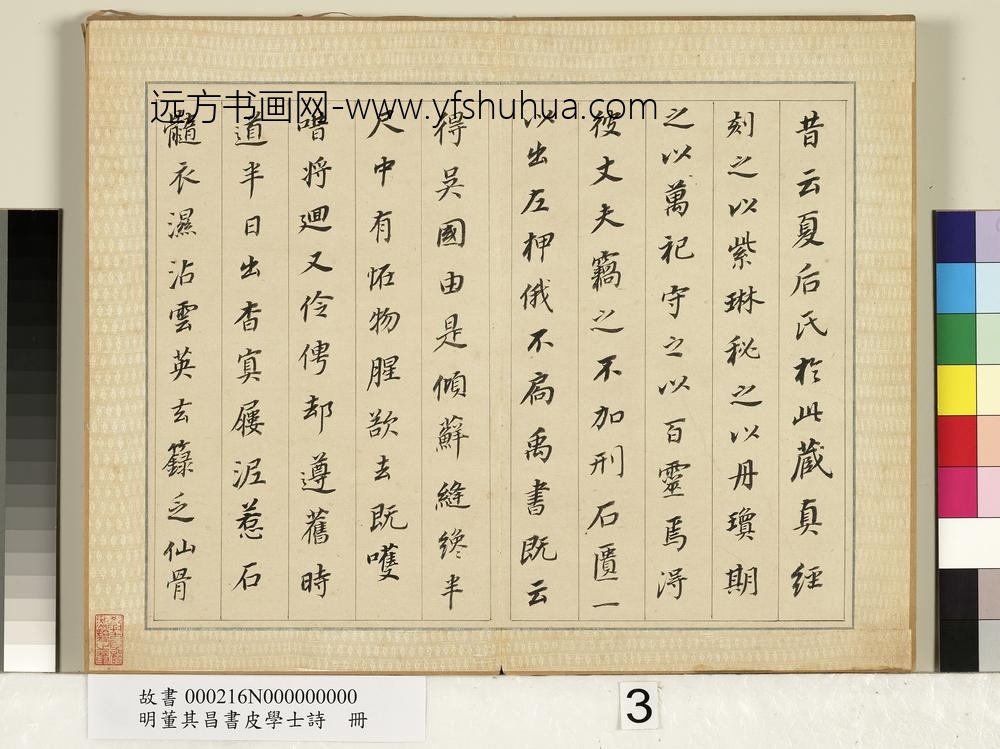 远方书画网-www.yfshuhua.com
昔云夏后氏於此蔵真經
刻之以紫琳秘之以丹瓊期
之以萬祀守之以百靈焉淂
彼丈夫竊之不加刑石匱一
以出左神俄不扃禹書既云
得吳國由是傾蘚縫纔半
尺中有怪物腥欲去既嚄
唶将廻又伶俜却遵舊時
道半日出杳㝠屨泥惹石
髓衣濕沾雲英玄籙乏仙骨
故書 000216N000000000
明董其昌書皮學士詩 冊
3